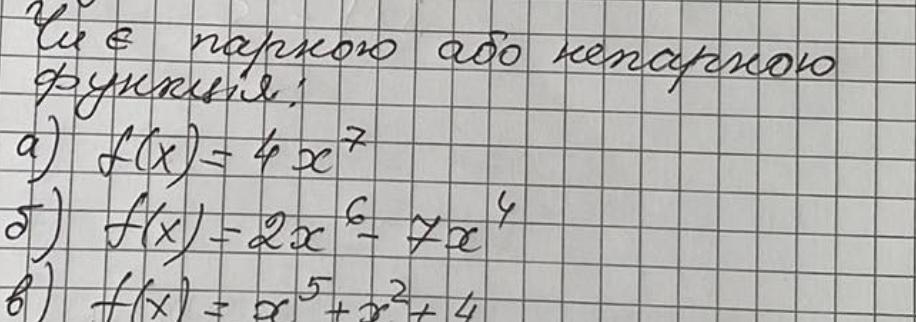 Чи є парною або непарною
функція:
а) f(x) = 4x⁷
б) f(x) = 2x⁶ - 7x⁴
в) f(x) = x⁵ + x² + 4